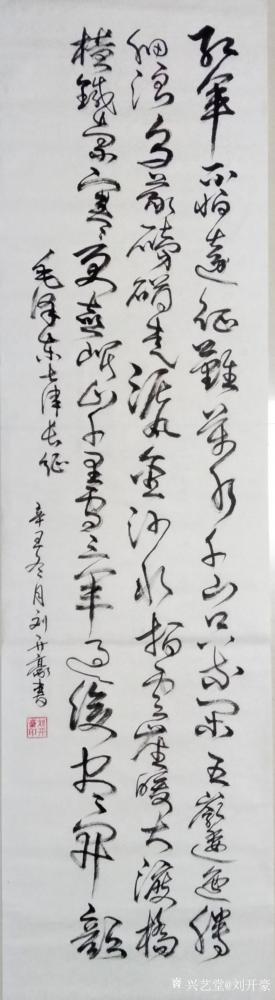 红軍不怕遠征難萬水千山只等闲五嶺逶迤腾
细浪乌蒙磅礴走泥丸金沙水拍雲崖暖大渡橋
横鐵索寒更喜岷山千里雪三軍过後尽開顏
毛泽东七律长征
辛丑冬月刘开豪书
刘开豪印
兴艺堂@刘开豪